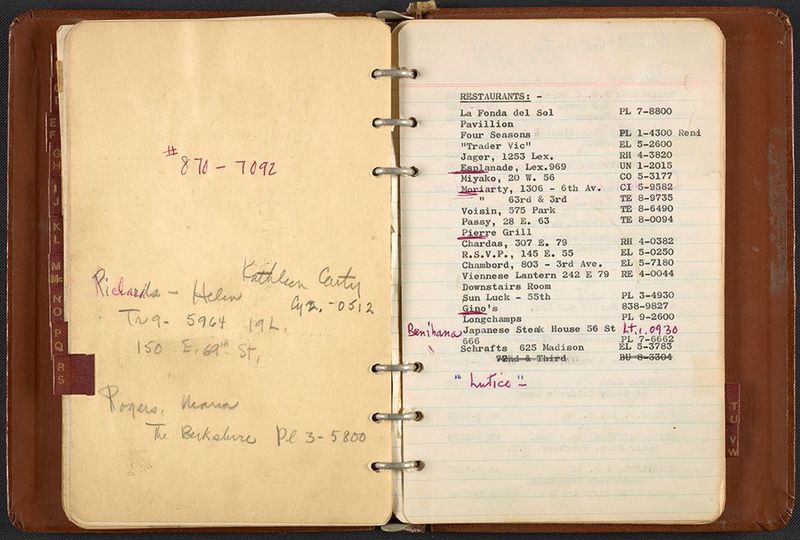 EF
GH
IJ
KL
M
Mc
NO
PQ
RS
# 870 - 7092
Kathleen Carty
Richards - Helen
Cy 2. - 0512
Tr 9 - 5964 19L.
150 E. 69th St.
Rogers, Maria
The Berkshire Pl 3-5800
RESTAURANTS: -
La Fonda del Sol PL 7-8800
Pavillion
Four Seasons PL 1-4300 Reni
"Trader Vic" EL 5-2600
Jager, 1253 Lex. RH 4-3820
Esplanade, Lex.969 UN 1-2015
Miyako, 20 W. 56 CO 5-3177
Moriarty, 1306 - 6th Av. CI 5-9582
" 63rd & 3rd TE 8-9735
Voisin, 575 Park TE 8-6490
Passy, 28 E. 63 TE 8-0094
Pierre Grill
Chardas, 307 E. 79 RH 4-0382
R.S.V.P., 145 E. 55 EL 5-0250
Chambord, 803 - 3rd Ave. EL 5-7180
Viennese Lantern 242 E 79 RE 4-0044
Downstairs Room
Sun Luck - 55th PL 3-4930
Gino's 838-9827
Longchamps PL 9-2600
Benihana Japanese Steak House 56 St Lt.1.0930
666 PL 7-6662
Schrafts 625 Madison EL 5-3783
72nd & Third BU 8-3304
"Lutice"
TU
VW